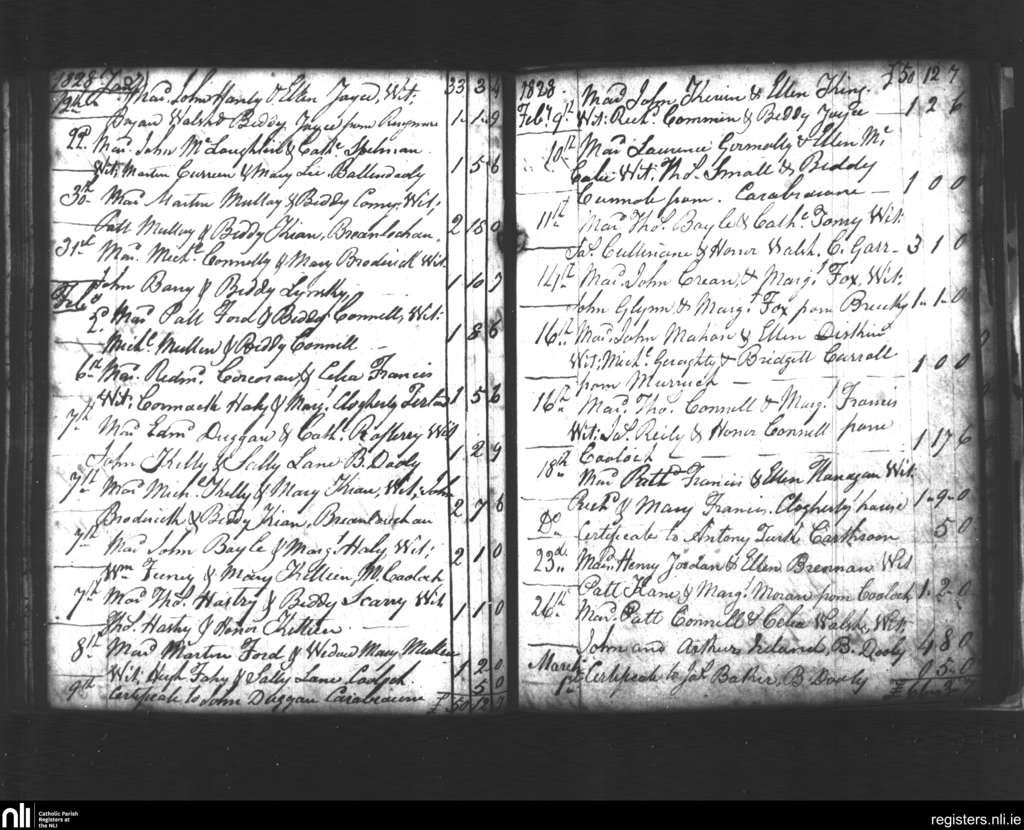 1828 Jany 33 3 4
19th Mard. John Hanly & Ellen Joyce, Wit.
Bryan Walsh & Biddy Joyce from Ringmore 1-1-9
22d. Mard. John McLaughlin & Cathe. Spelman
Wit: Martin Curreen & Mary Lee Ballendooly 1 5 6
30th Mard. Martin Mullay & Biddy Conry, Wit;
Patt Mullay & Biddy Kian, Breanlochan. 2 18 0
31st Mard. Michl. Connolly & Mary Broderick Wit.
John Barry & Biddy Lynsky 1 10 9
Feby
5. Mard. Patt Ford & Biddy Connell, Wit:
Michl. Mullen & Biddy Connell 1 8 6
6th Mard. Redmd. Corcoran & Celia Francis
Wit: Cormack Haly & Margt. Clogherty 1 5 6
7th Mard. Eamd. Duggan & Cathe. Rafterey Wit
John Kelly & Sally Lane B. Dooly 1 2 9
7th Mard. Michl. Kelly & Mary Kian, Wit; John
Broderick & Biddy Kian, Breanloughan 2 7 6
7th Mard. John Boyle & Margt. Haly Wit;
Wm. Feeney & Mary Killeen, M. Cooloch 2 1 0
7th Mard. Thos. Hasty & Biddy Scarry Wit
Thos. Hasty & Honor Killeen 1 1 0
8th Mard. Martin Ford & Widow Mary Mullen
Wit. Hugh Fahy & Sally Lane Cooloch 1 2 0
9th Certificate to John Duggan Carabrowne 5 0
£ 50 12 7
1828. £ 50 12 7
Feby. 9th Mard. John & Ellen King
Wit: Richd. Commin & Biddy Joyce 1 2 6
10th Mard. Laurence Gormolly & Ellen Mc
Wit: Thos. Small & Biddy
from Carabrowne 1 0 0
11th Mard. Thos. Boyle & Cathe. Wit:
Js. Cullinane & Honor Walsh C. Garr 3 1 0
14th Mard. John Crean, & Margt. Fox, Wit.
John Glynn & Margt. Fox from 1-1-0
16th Mard. John Mahon & Ellen
Wit, Michl. Geraghty & Bridgett Carroll
from Murruch 1 0 0
16th Mard. Thos. Connell & Margt. Francis
Wit: Js. Reily & Honor Connell from
Cooloch 1 17 6
18th Mard. Pattk. Francis & Ellen Flanagan Wit.
Richd. & Mary Francis, Clogherty's house 1-9-0
Do. Certificate to Antony Turk 5 0
23d. Mard. Henry Jordan & Ellen Brennan Wit
Patt Kane & Margt. Moran from Cooloch 1-2-0
26th Mard. Patt Connell & Celia Walsh, Wit
John and Arthur Ireland, B. Dooly 4 8 0
March 1st Certificate to Js. Baker, B. Dooly 0 5-0
nli
Catholic Parish
Registers at
the NLI
registers.nli.ie